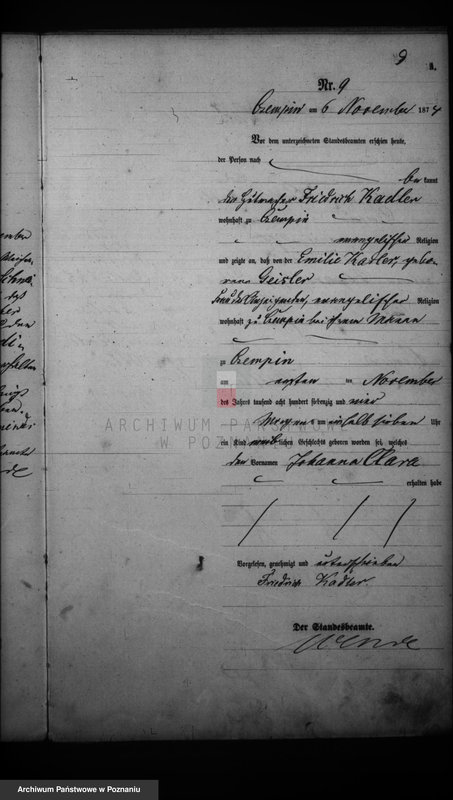 9
A.
Nr. 9
Czempin am 6 November 1874
Vor dem unterzeichneten Standesbeamten erschien heute,
der Person nach
be kannt
der Hutmacher Friedrich Kadler
wohnhaft zu Czempin
evangelischer Religion
und zeigte an, daß von der Emilie Kadler, gebo-
rene Geisler
Frau des Anzeigenden, evangelischer Religion
wohnhaft zu Czempin bei ihrem Manne
zu Czempin
am ersten ten November
des Jahres tausend acht hundert siebenzig und vier
Morgens um ein halb sieben Uhr
ein Kind weiblichen Geschlechts geboren worden sei, welches
den Vornamen Johanna Clara
erhalten habe
Vorgelesen, genehmigt und unterschrieben
Friedrich Kadler.
Der Standesbeamte.
Wende
ARCHIWUM PAŃSTWOWE
W POZNANIU
Archiwum Państwowe w Poznaniu